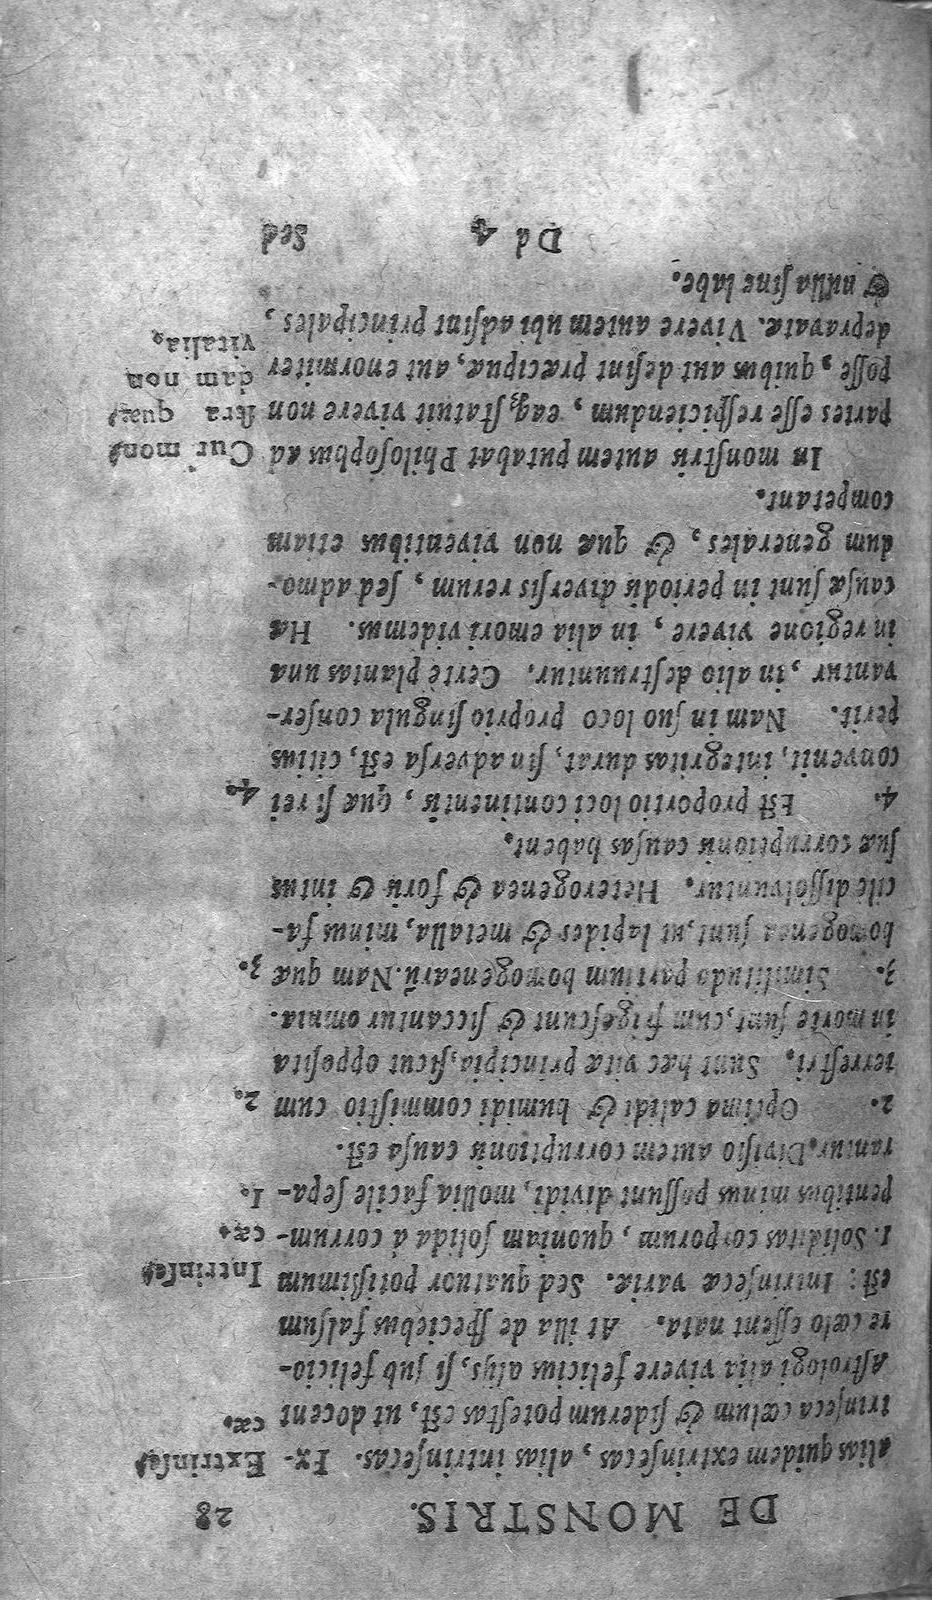 DE MONSTRIS. 28
alias quidem extrinſecas, alias intrinſecas. Ex- Extrinſe-
trinſeca cœlum & ſiderum poteſtas eſt, ut docent cæ.
Aſtrologi alia vivere felicius alijs, ſi ſub felicio-
re cœlo eſſent nata. At illa de ſpeciebus falſum
eſt: Intrinſecæ variæ. Sed quatuor potißimum Intrinſe-
1. Soliditas corporum, quoniam ſolida à corrum- cæ.
pentibus minus poſſunt dividi, mollia facile ſepa- 1.
rantur. Diviſio autem corruptionis cauſa eſt.
2. Optima calidi & humidi commiſtio cum 2.
terreſtri. Sunt hæc vitæ principia, ſicut oppoſita
in morte ſunt, cum frigeſcunt & ſiccantur omnia.
3. Similitudo partium homogenearũ. Nam quæ 3.
homogenea ſunt, ut lapides & metalla, minus fa-
cile diſſolvuntur. Heterogenea & foris & intus
ſuæ corruptionis cauſas habent.
4. Eſt proportio loci continentis, quæ ſi rei 4.
convenit, integritas durat, ſin adverſa eſt, citius
perit. Nam in ſuo loco proprio ſingula conſer-
vantur, in alio deſtruuntur. Certè plantas una
in regione vivere, in alia emori videmus. Hæ
cauſæ ſunt in periodis diverſis rerum, ſed admo-
dum generales, & quæ non viventibus etiam
competant.
In monſtris autem putabat Philoſophus ad Cur mon-
partes eſſe reſpiciendum, eaq́; ſtatuit vivere non ſtra quæ-
poſſe, quibus aut deſint præcipuæ, aut enormiter dam non
depravatæ. Vivere autem ubi adſint principales, vitalia.
& nulla ſine labe.
Dd 4 Sed